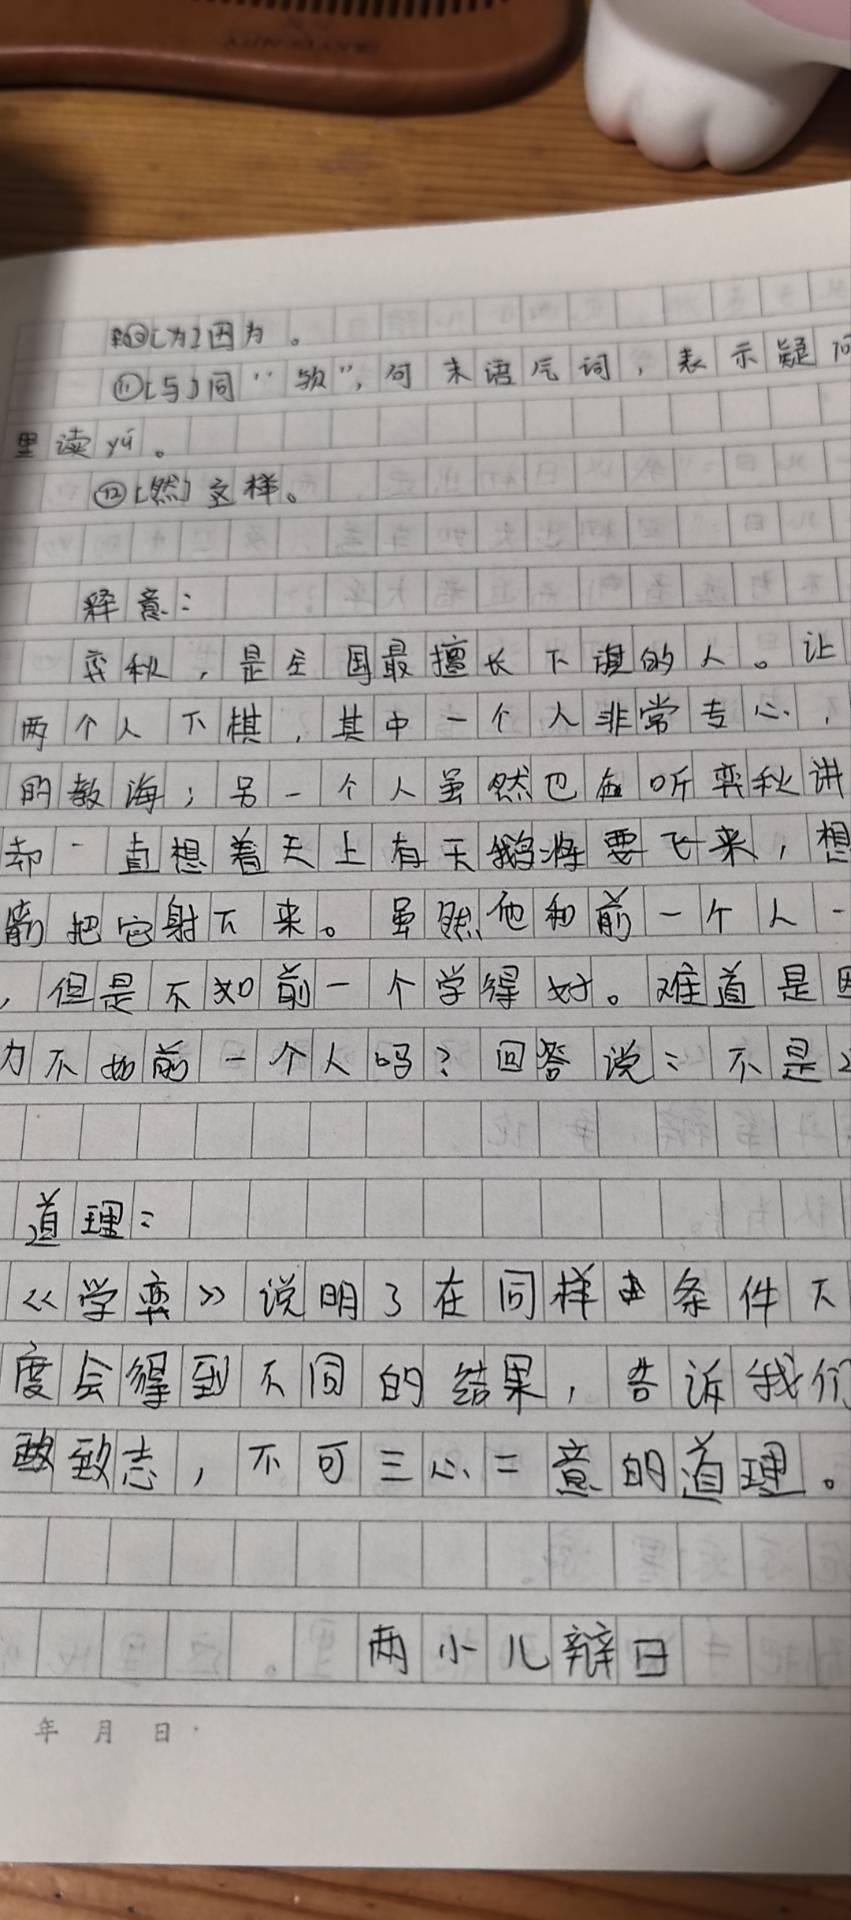 ⑩[为]因为。
⑪[与]同“欤”,句末语气词,表示疑问
里读yú。
⑫[然]这样。
释意:
弈秋,是全国最擅长下棋的人。让
两个人下棋,其中一个人非常专心,
的教海;另一个人虽然也在听弈秋讲
却一直想着天上有天鹅将要飞来,想
箭把它射下来。虽然他和前一个人一
,但是不如前一个学得好。难道是因
力不如前一个人吗?回答说:不是这
道理:
《学弈》说明了在同样条件下
度会得到不同的结果,告诉我们
致志,不可三心二意的道理。
两小儿辩日
年 月 日